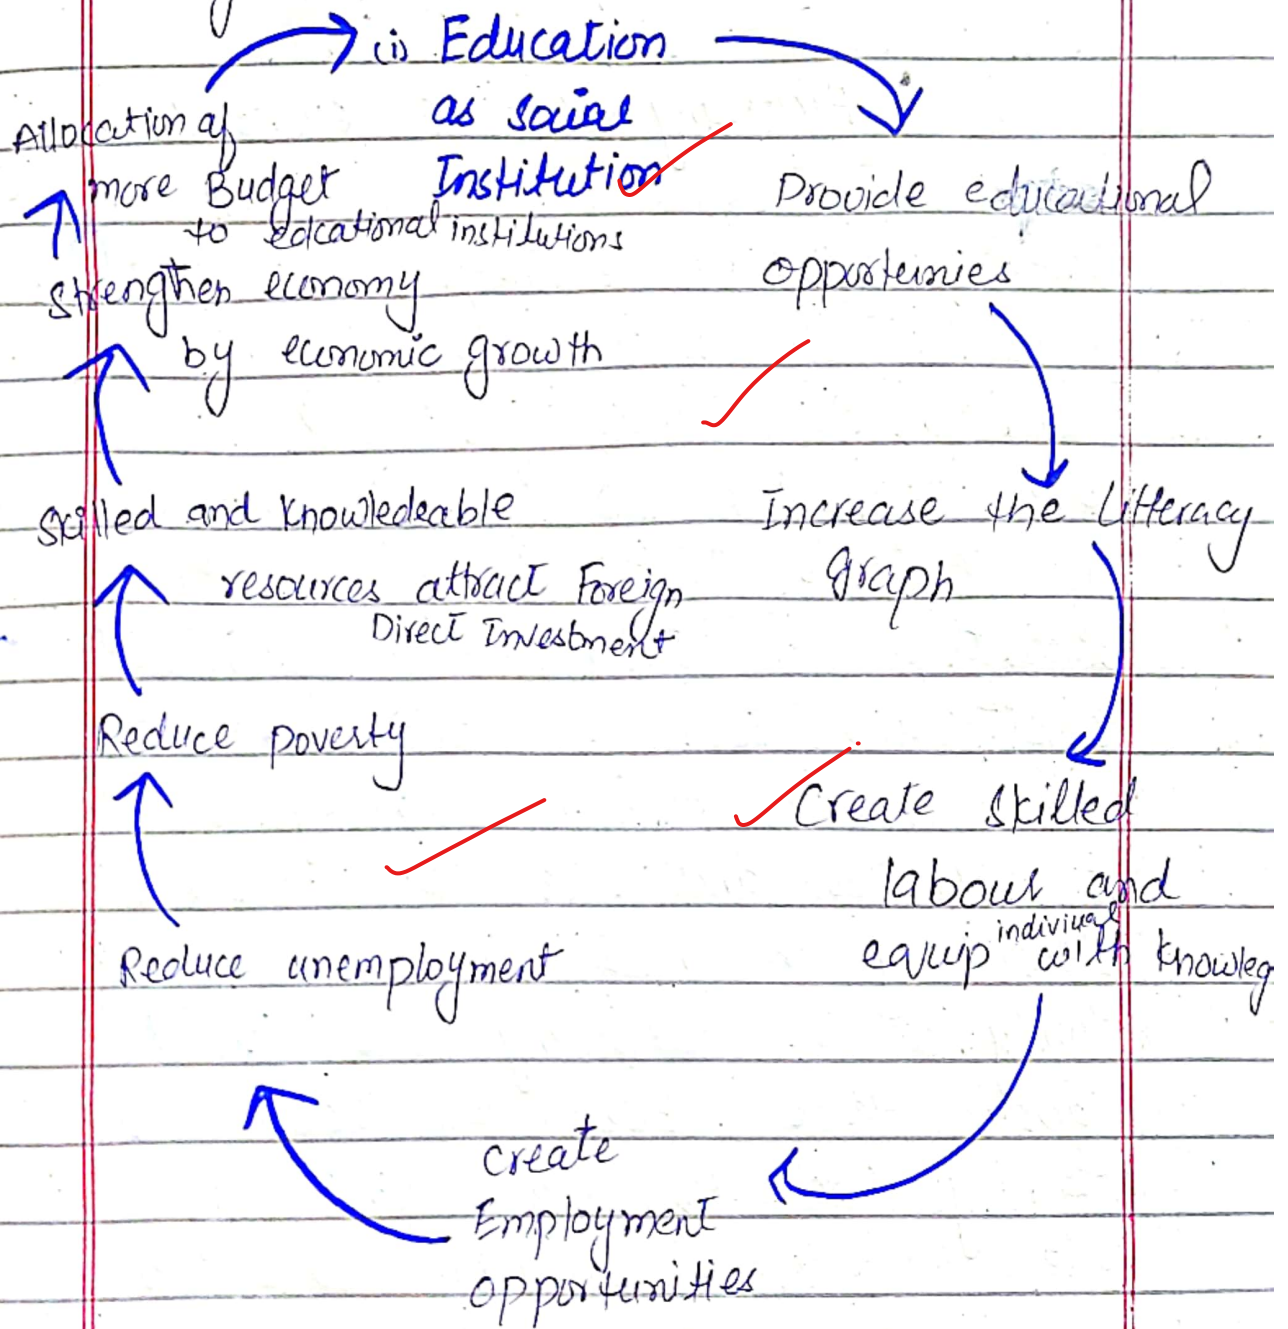 (i) Education
as social
Institution
Provide educational
opporteinies
Increase the Litteracy
graph
Create skilled
labour and
equip individual with knowleg
Create
Employment
opportunities
Reduce unemployment
Reduce poverty
Skilled and knowledeable
resources attract Foreign
Direct Investment
Strengthen economy
by economic growth
Allocation of
more Budget
to edcational institutions